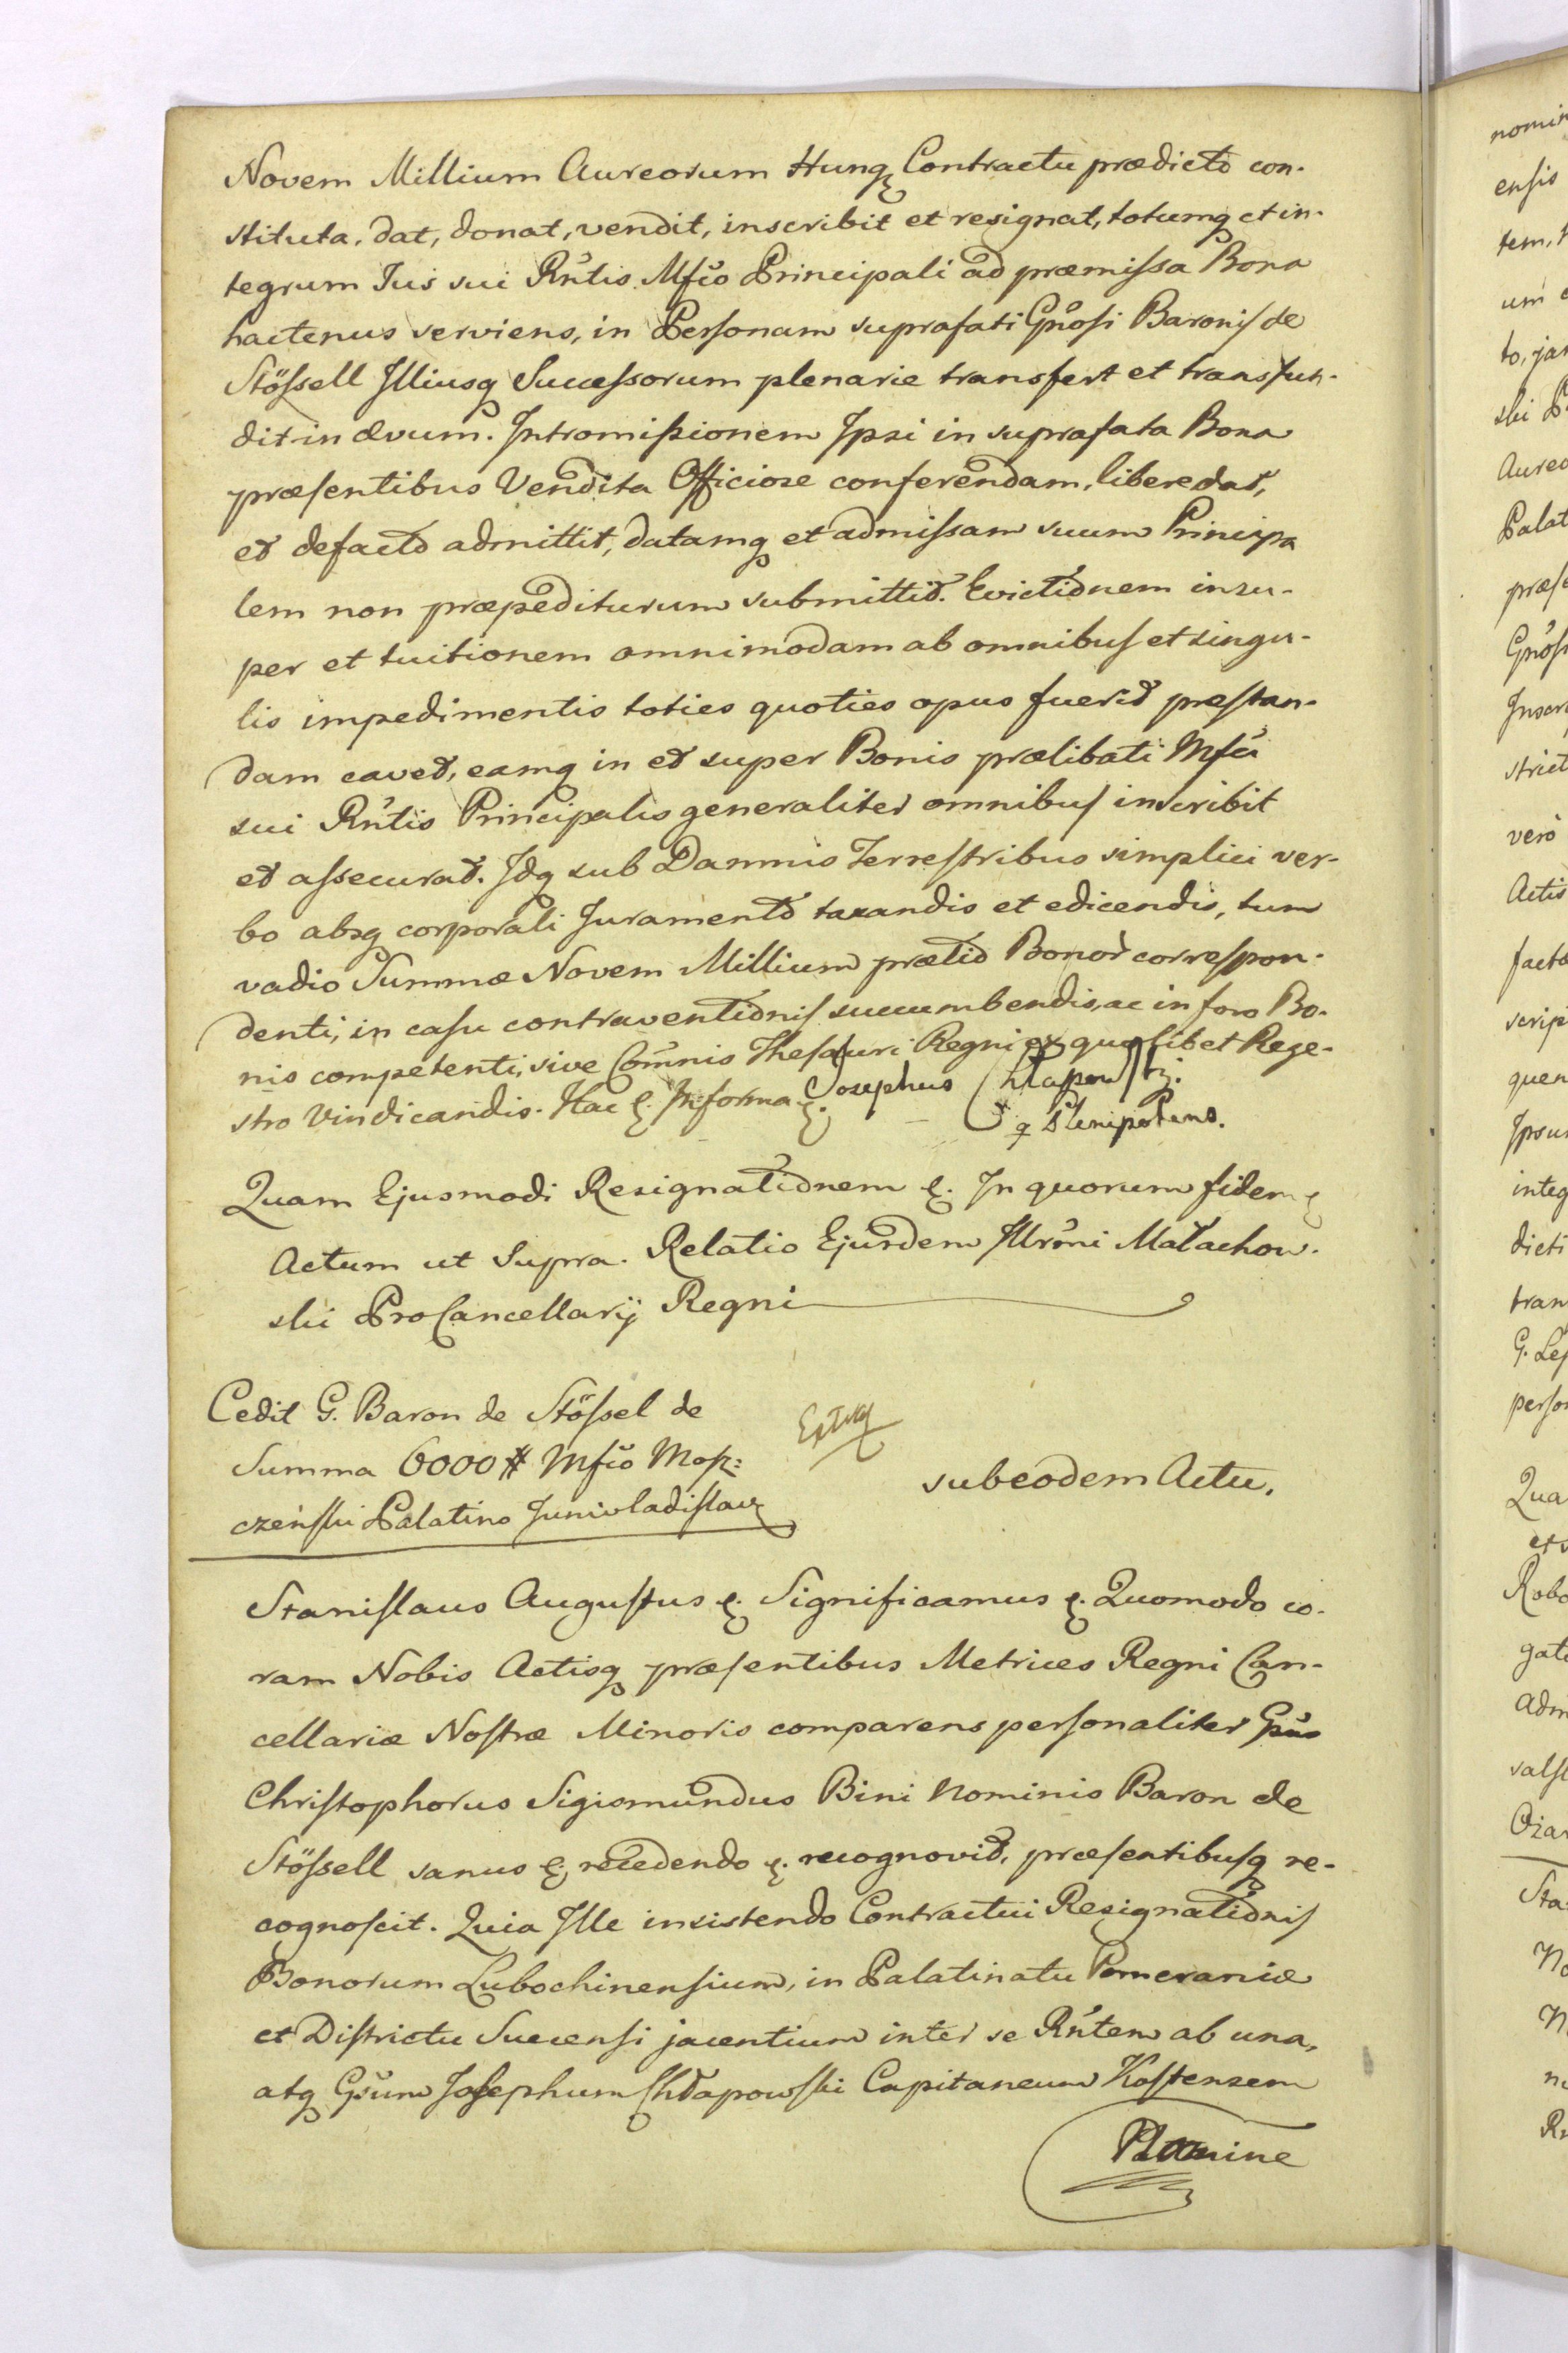 Novem Millium Aureorum Hungq Contractu prædicto con-
stituta, dat, donat, vendit, inscribit et resignat, totumq et in-
tegrum Jus sui Rntis Mfco Principali ad præmissa Bona
hactenus serviens, in Personam suprafati Gnosi Baronis de
Stössell Illiusq Successorum plenarie transfert et transfun-
dit in ævum. Intromissionem Ipsi in suprafata Bona
præsentibus Vendita Officiose conferendam, libere dat,
et defacto admittit, datamq et admissam suum Principa
lem non præpediturum submittit. Evictionem insu-
per et tuitionem omnimodam ab omnibus et singu-
lis impedimentis toties quoties opus fuerit præstan-
dam cavet, eamq in et super Bonis prælibati Mfci
sui Rntis Principalis generaliter omnibus inscribit
et assecurat. Idq sub Damnis Terrestribus simplici ver-
bo absq corporali Juramento taxandis et edicendis, tum
vadio Summæ Novem Millium prætio Bonor correspon-
denti, in casu contraventionis succumbendis, ac in foro Bo-
nis competenti, sive Comnis Thesauri Regni ex quolibet Rege-
stro Vindicandis. Hac &. In forma &. Josephus Chłapowski.
q Plenipotens.
Quam Ejusmodi Resignationem &. In quorum fidem &
Actum ut Supra. Relatio Ejusdem Illrmi Małachow-
ski ProCancellarij Regni
Cedit G. Baron de Stössel de
Summa 6000 # Mfco Mosz=
czeński Palatino Junivladislav
Extrq
sub eodem Actu.
Stanislaus Augustus &. Significamus &. Quomodo co-
ram Nobis Actisq præsentibus Metrices Regni Can-
cellariæ Nostræ Minoris comparens personaliter Gnus
Christophorus Sigismundus Bini Nominis Baron de
Stössell sanus &, recedendo &. recognovit, præsentibusq re-
cognoscit. Quia Ille insistendo Contractui Resignationis
Bonorum Lubochinensium, in Palatinatu Pomeraniæ
et Districtu Suecensi jacentium inter se Rntem ab una,
atq Gsum Josephum Chłapowski Capitaneum Kostensem